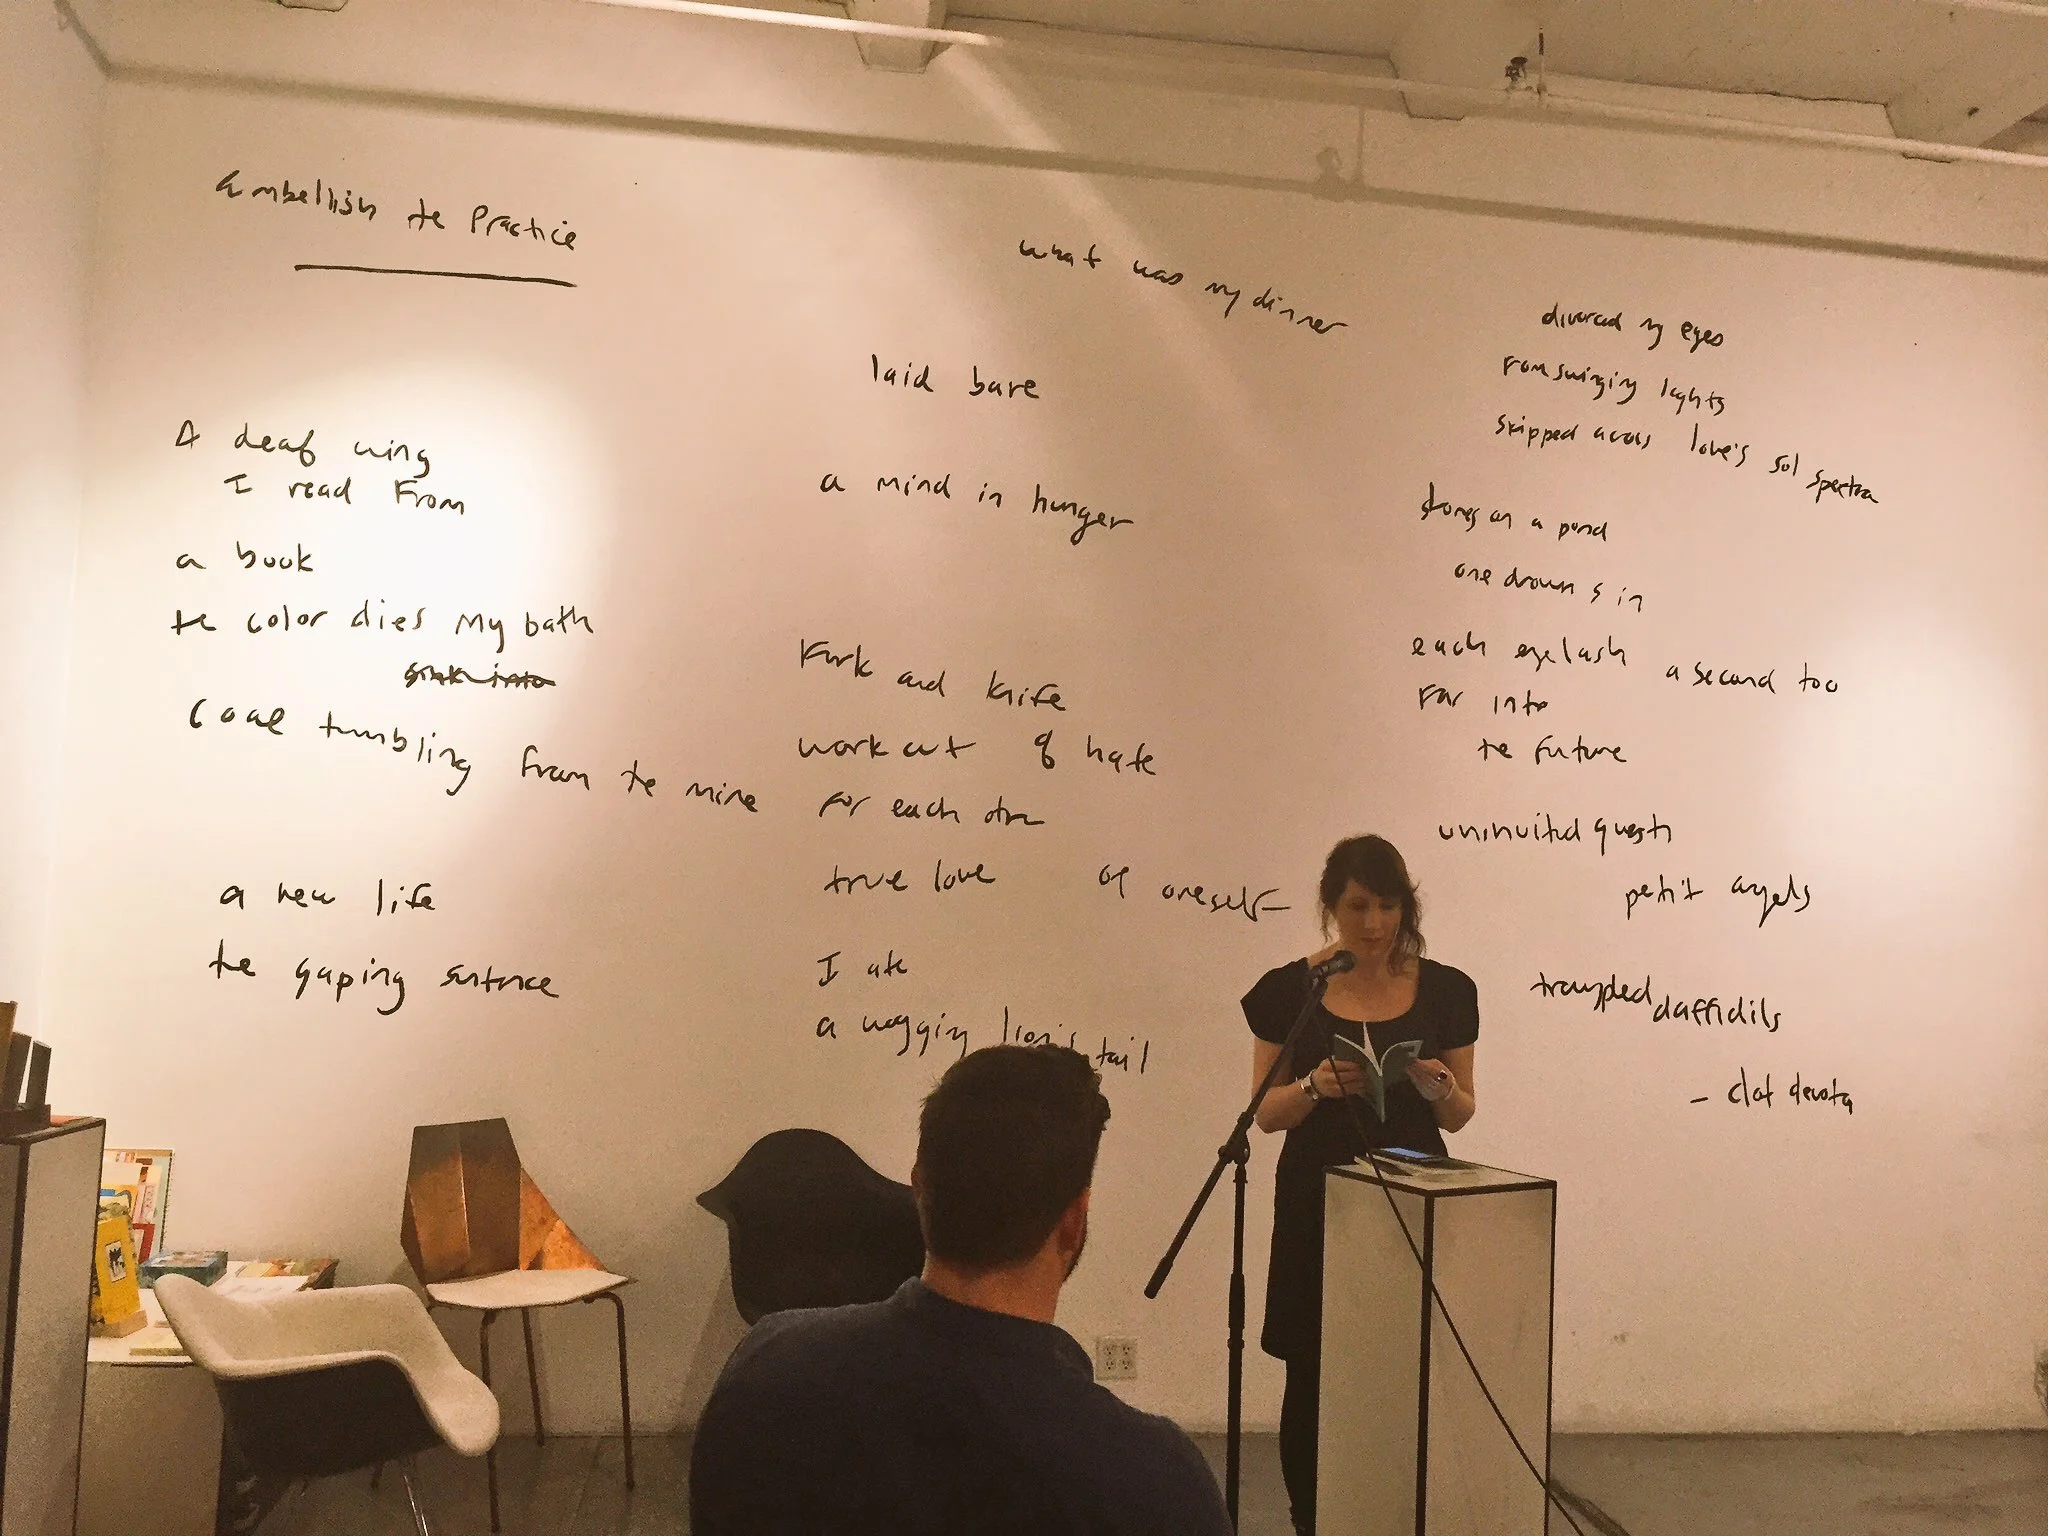 embellish the Practice
A deaf wing
I read From
a book
the color dies My bath
sink into
Coal tumbling from the mine
a new life
the gaping sentence
what was my dinner
laid bare
a mind in hunger
Fork and knife
work out of hate
For each other
true love of oneself
I ate
a wagging lion's tail
divorced my eyes
From swinging lights
skipped across love's sol spectra
stones on a pond
one drowns in
each eyelash a second too
Far into
the future
uninvited guests
petit angels
trampled daffidils
- clot devota